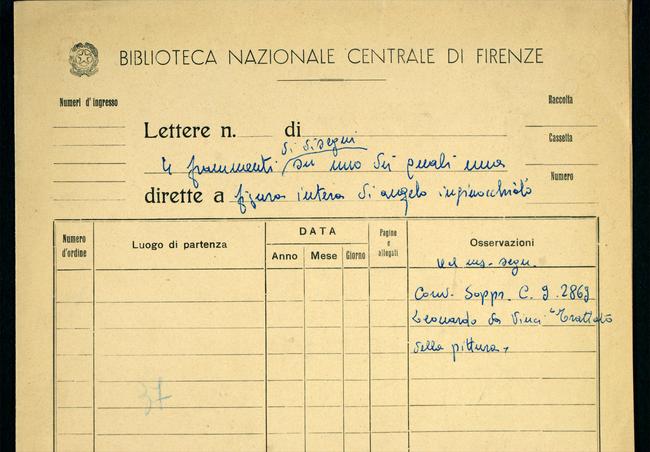 BIBLIOTECA NAZIONALE CENTRALE DI FIRENZE
Numeri d'ingresso
Raccolta
Lettere n. di
Cassetta
di disegni
4 frammenti su uno dei quali una
Numero
dirette a figura intera di angelo inginocchiato
Numero d'ordine
Luogo di partenza
DATA
Anno Mese Giorno
Pagine e allegati
Osservazioni
Conv. Soppr. C. 9. 2863
Leonardo da Vinci "Trattato
della pittura,
37